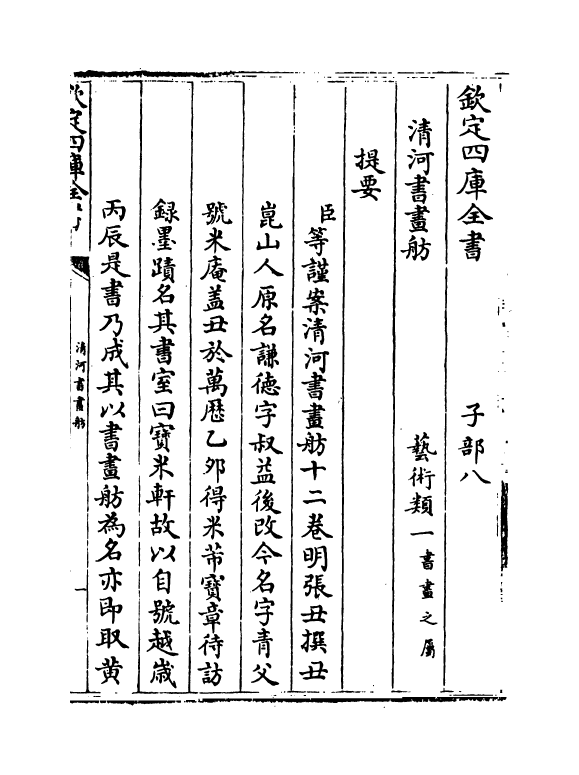 欽定四庫全書　子部八
清河書畫舫　藝術類一書畫之屬
提要
臣等謹案清河書畫舫十二卷明張丑撰丑
崑山人原名謙徳字叔益後改今名字青父
號米庵蓋丑於萬厯乙夘得米芾寶章待訪
録墨蹟名其書室曰寶米軒故以自號越歳
丙辰是書乃成其以書畫舫為名亦即取黄
欽定四庫全
清河書畫舫
一